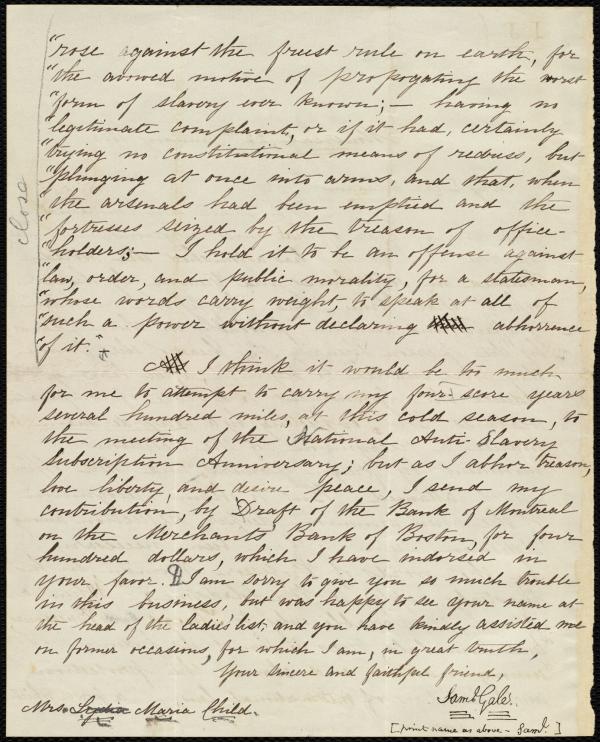 "rose against the freest rule on earth, for
"the avowed motive of propogating the worst
"form of slavery ever known; — having no
"legitimate complaint, or if it had, certainly
"trying no constitutional means of redress, but
"plunging at once into arms, and that, when
"the arsenals had been emptied and the
"fortresses seized by the treason of office-
"holders; — I hold it to be an offense against
"law, order, and public morality, for a statesman,
"whose words carry weight, to speak at all of
"such a power without declaring abhorrence
"of it."
close
I think it would be too much
for me to attempt to carry my four score years
several hundred miles, at this cold season, to
the meeting of the National Anti-Slavery
Subscription Anniversary; but as I abhor treason,
love liberty, and desire peace, I send my
contribution, by Draft of the Bank of Montreal
on the Merchants Bank of Boston, for four
hundred dollars, which I have indorsed in
your favor. I am sorry to give you so much trouble
in this business, but was happy to see your name at
the head of the ladies list; and you have kindly assisted me
on former occasions, for which I am, in great truth,
Your sincere and faithful friend,
Saml Gale.
Mrs. Lydia Maria Child.
[print name as above - Saml.]